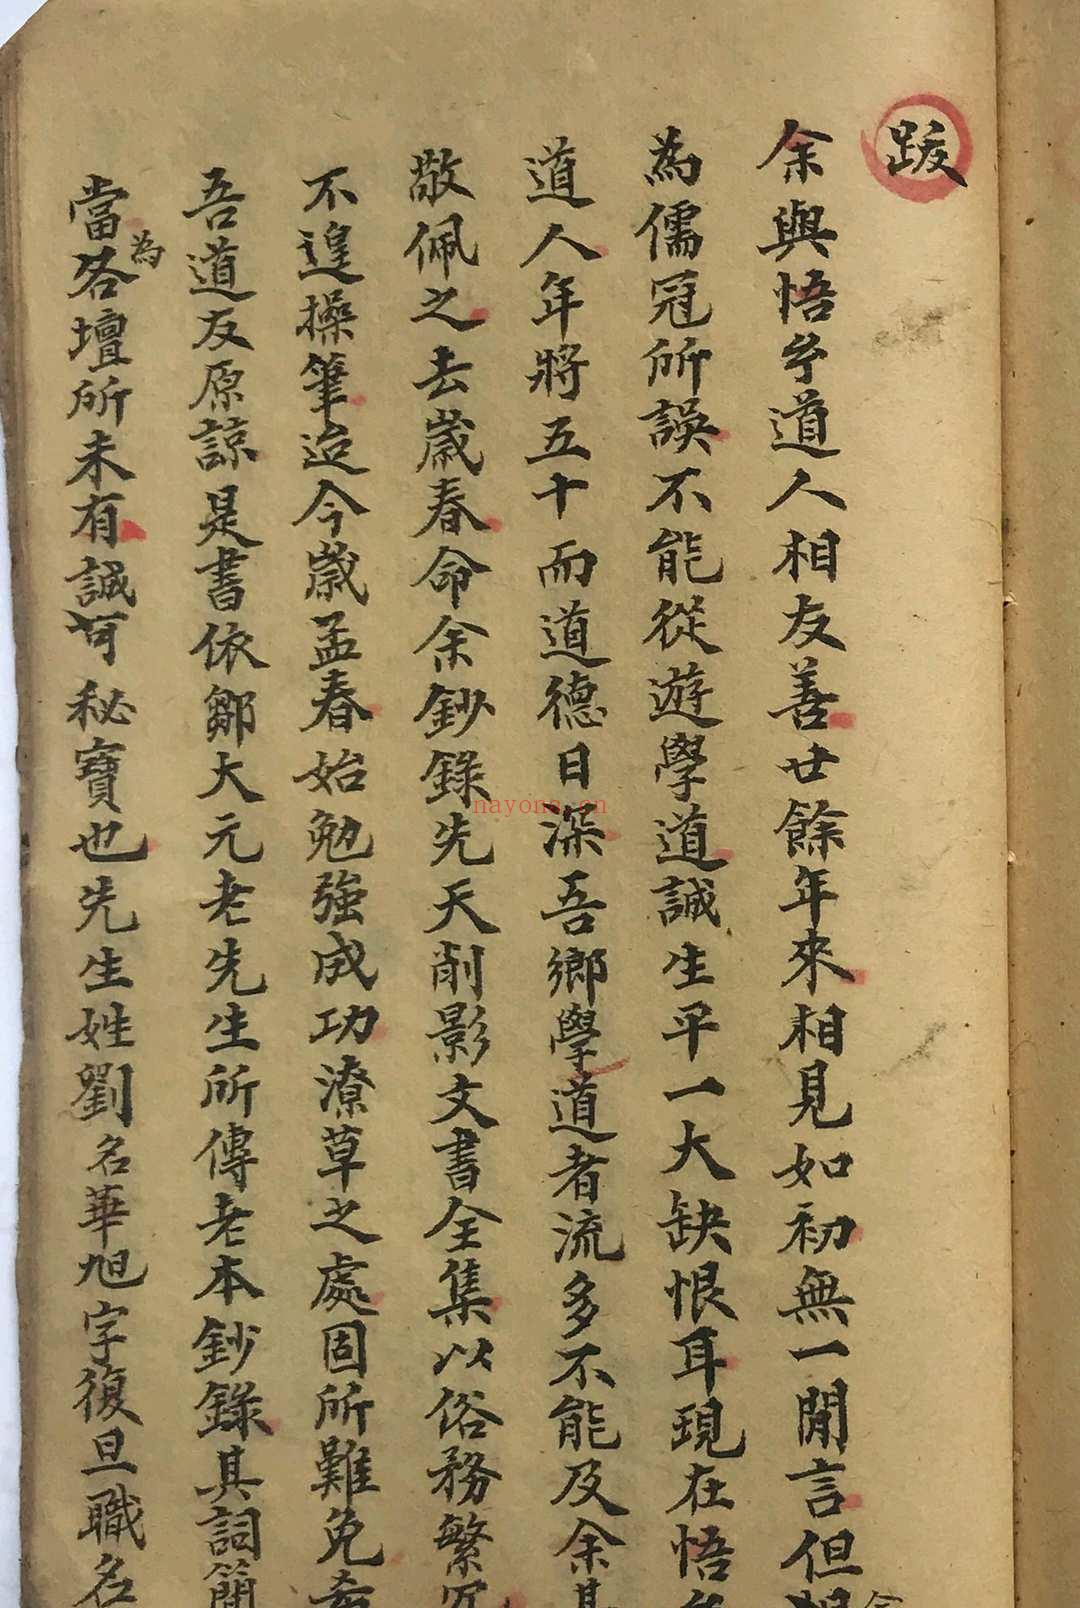 跋
余與悟玄道人相友善廿餘年來相見如初無一閒言但
為儒冠所誤不能從遊學道誠生平一大缺恨耳現在悟
道人年將五十而道德日深吾鄉學道者流多不能及余甚
敬佩之去歲春命余鈔錄先天削影文書全集以俗務繁冗
不遑操筆迨今歲孟春始勉強成功潦草之處固所難免
吾道友原諒是書依鄒大元老先生所傳老本鈔錄其詞簡
當為各壇所未有誠可秘寶也先生姓劉名華旭字復旦職名
nayona.cn